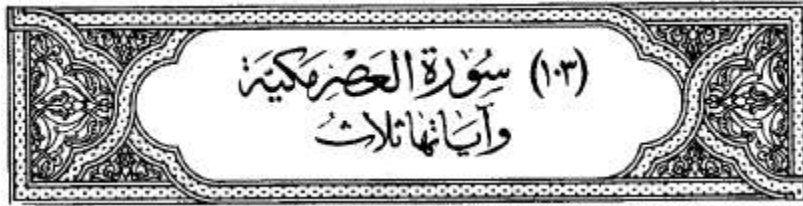 (١٠٣) سُورَة العَصْرِ مَكيَّة
وآيَاتها ثلاثُ